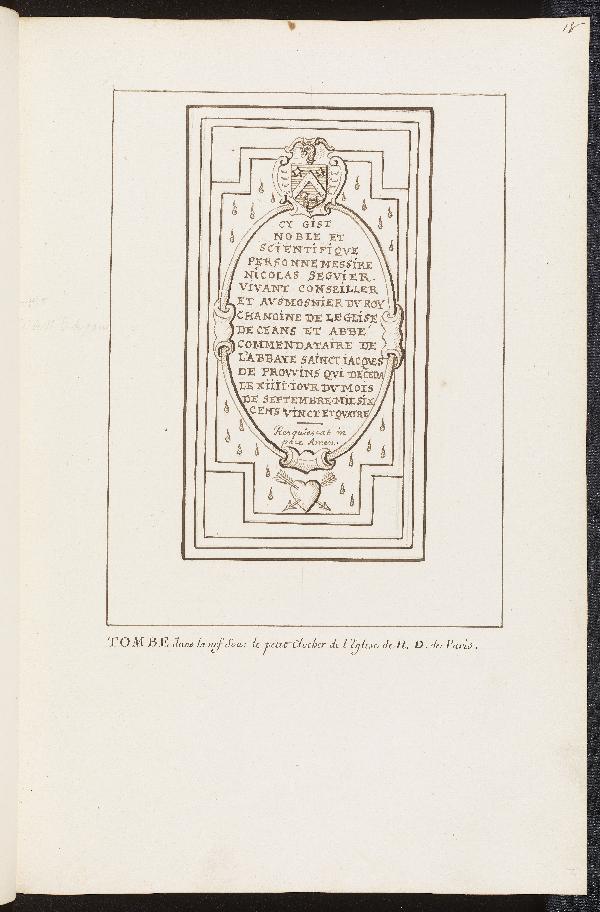 18
CY GIST
NOBLE ET
SCIENTIFIQVE
PERSONNE MESSIRE
NICOLAS SEGVIER.
VIVANT CONSEILLER
ET AVSMOSNIER DV ROY
CHANOINE DE LEGLISE
DE CEANS ET ABBÉ
COMMENDATAIRE DE
L'ABBAYE SAINCT IACQVES
DE PROVVINS QVI DECEDA
LE XIIII IOVR DV MOIS
DE SEPTEMBRE MIL SIX
CENS VINCT ET QVATRE
Resquiescat in
pace Amen.
TOMBE dans la nef Sous le petit Clocher de l'Eglise de N. D. de Paris.